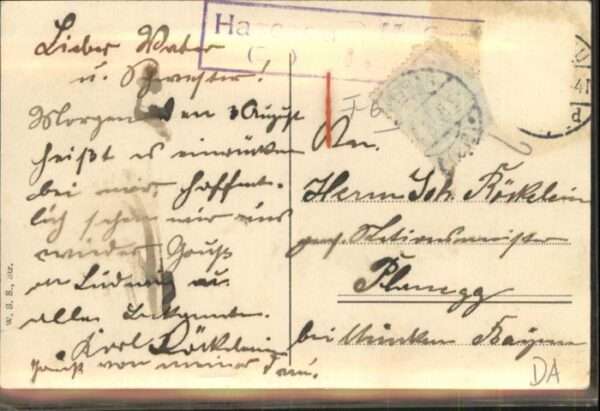 Lieber Vater
u. Schwester!
Morgen den 3 August
heißt es einrücken
bei mir, hoffent-
lich sehen wir uns
wieder Gruß
an Ludwig u.
alle Bekannten.
Karl Röckelein
Gruß von meiner Frau.
Ha
An.
Herrn Joh. Röckelein
Planegg
bei München Bayern
W. S. B.
DA